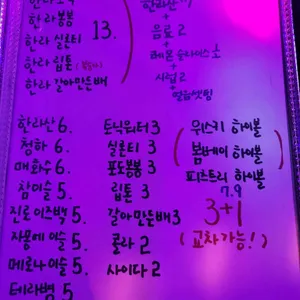 한라봉봉
한라 실론티
13.
한라 립톤
한라 갈아만든배
한라산
+
음료 2
+
레몬 슬라이스
+
시럽 2
+
한라산 6.
청하 6.
매화수 6.
참이슬 5.
진로이즈백 5.
자몽에이슬 5.
메로나이슬 5.
테라병 5
토닉워터 3
실론티 3
포도봉봉 3
립톤 3
갈아만든배 3
콜라 2
사이다 2
위스키 하이볼
봄베이 하이볼
피츠트리 하이볼
7.9
3+1
(교차가능!)